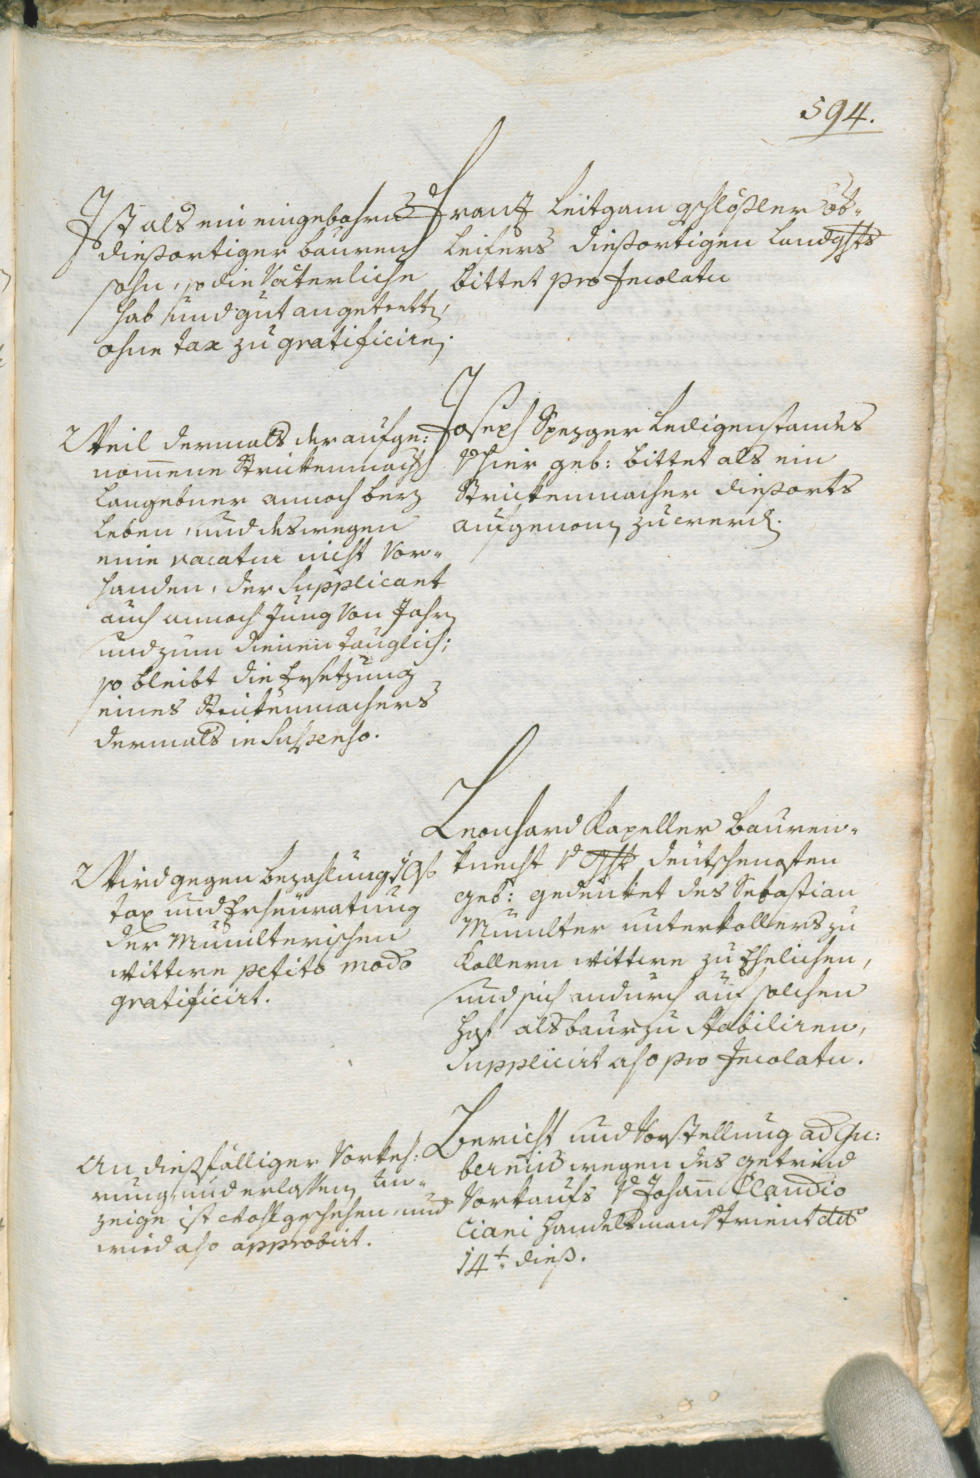 594.
Ist als ein eingebohrner
dießortiger baurens
sohn, so die Vaterliche
haab und gut angetretten,
ohne tax zu gratificiren.
Frantz Leitgam gschlößler
Leifers dießortigen Landghts
bittet pro Incolatu
Weil dermals der aufge:
nomene Strickenmacher
Langebner annoch bey
Leben, und deswegen
eine vacatur nicht Vor¬
handen, der Supplicant
auch annoch Jung Von Jahren
und zum dienen tauglich;
so bleibt die Ersetzung
eines Strickenmachers
dermals in Suspenso.
Joseph Spezger Ledigenstandes
hier geb: bittet als ein
Strickenmacher dießorts
aufgenomen zu werden.
Wird gegen bezahlung
tax und Erheuratung
der Mumelterischen
wittwe petito modo
gratificirt.
Leonhard Kapeller bauren¬
knecht deutschenofen
geb: gedenket des Sebastian
Mumelter unterkollers zu
Kollern wittwe zu Ehelichen,
und sich andurch auf solchen
Hof als baur zu stabiliren,
Supplicirt also pro Incolatu.
An dießfälliger Vorkeh:
rung und erlassenen An¬
zeige ist wohl geschehen und
wird also approbirt.
Bericht und Vorstellung ad Gu:
bernium wegen des getreid
Vorkaufs Johann Claudio
Ciani Handelsman Trient dto
14t. dieß.